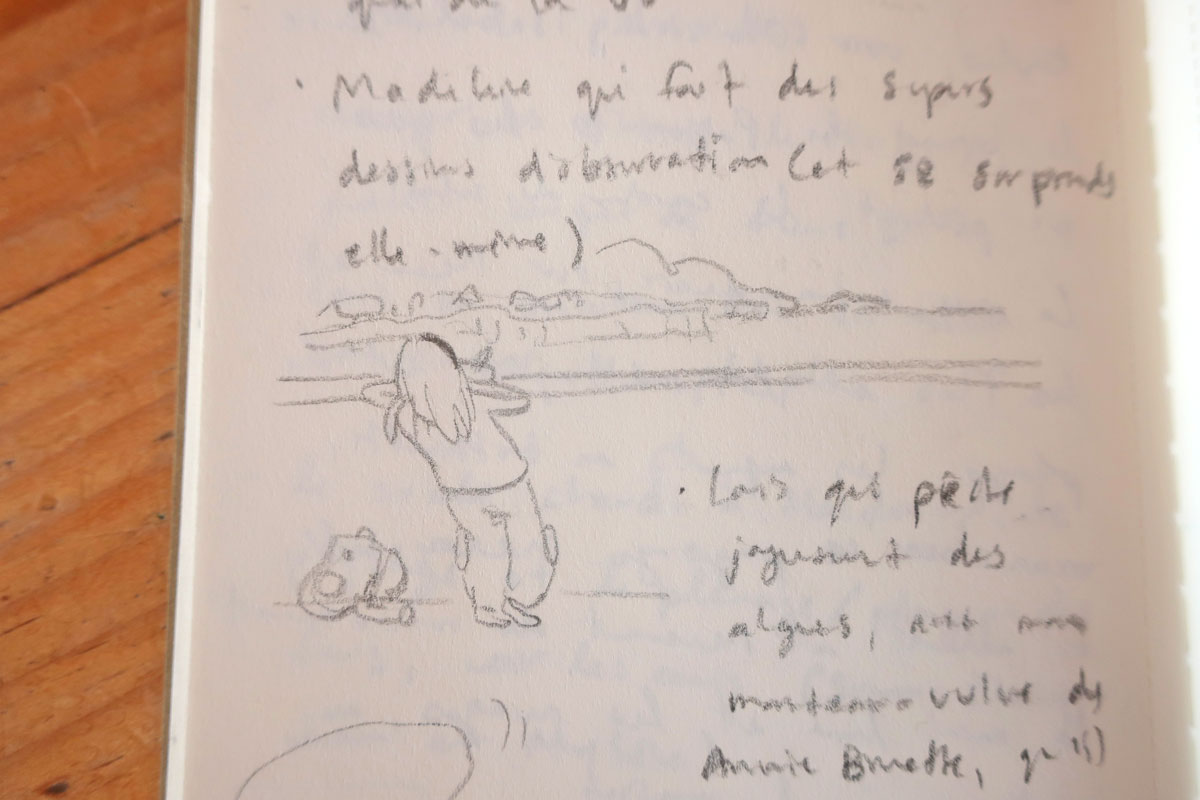 · Madeleine qui fait des supers
dessins d'observation (et se surprends
elle-même)
· Loïs qui pêche
joyeusement des
algues, avec mon
manteau-vulve de
Annie Brunette, qu'il